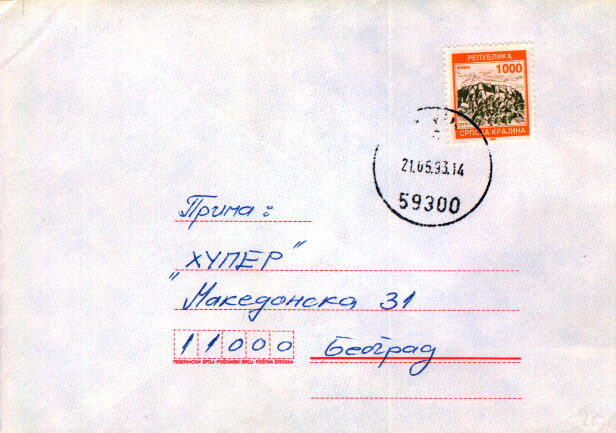 РЕПУБЛИКА
1000
СРПСКА КРАЈИНА
21.05.93.14
59300
Прима:
ХУПЕР"
"Македонска 31
11000 Београд
ПОШТАНСКИ БРОЈ - POŠTANSKI BROJ - POŠTNA ŠTEVILKA